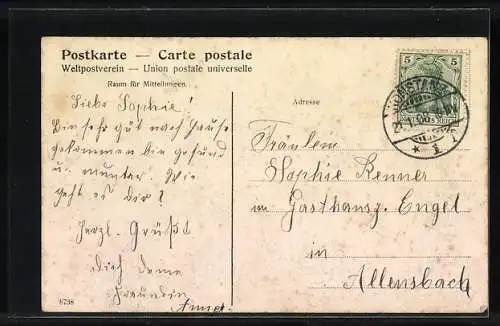 Postkarte — Carte postale
Weltpostverein — Union postale universelle
Raum für Mitteilungen.
Adresse
5 5
Liebe Sophie!
Bin sehr gut nach Hause
gekommen bin gesund
u. munter. Wie
geht es dir?
Herzl. Grüßt
dich deine
Freundin
Anna
Fräulein
Sophie Renner
im Gasthausz. Engel
in
Allensbach
6738